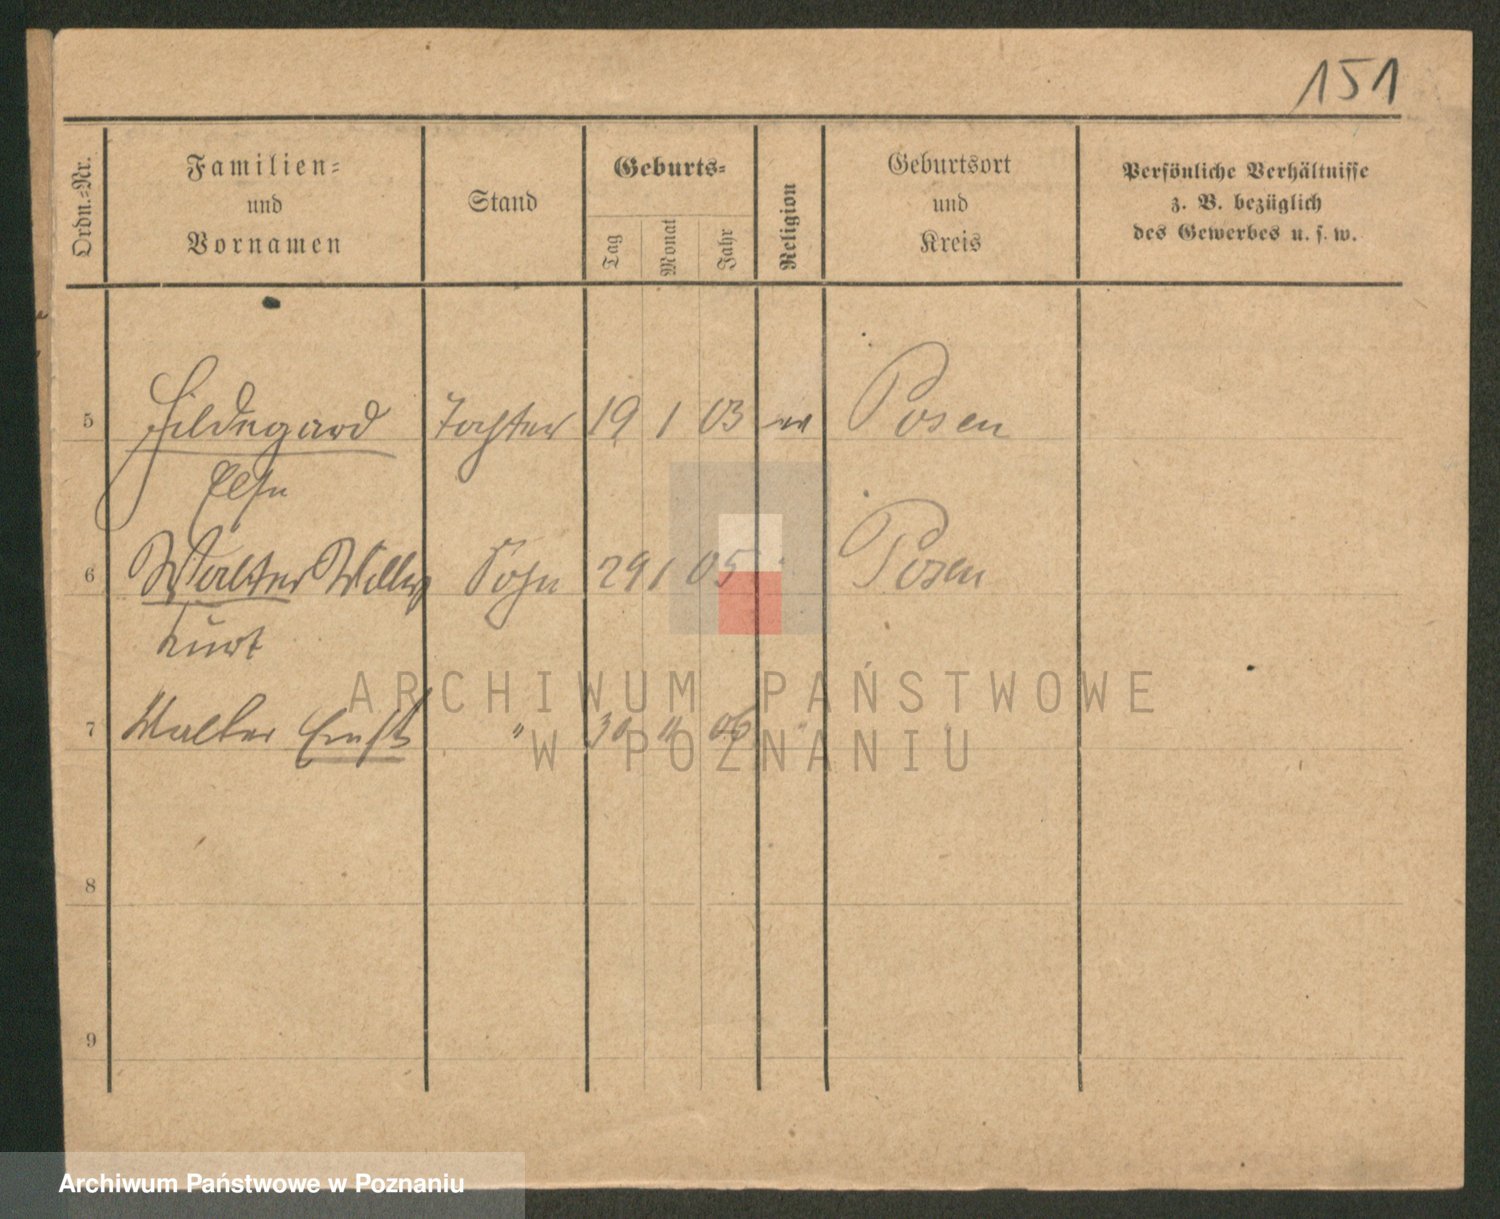 151
Ordn.-Nr.
Familien-
und
Vornamen
Stand
Geburts-
Tag
Monat
Jahr
Religion
Geburtsort
und
Kreis
Persönliche Verhältnisse
z. B. bezüglich
des Gewerbes u. s. w.
5 Hildegard Tochter 19 1 03 ev Posen
Else
6 Walter Willy Sohn 29 1 05 Posen
Kurt
7 Walter Ernst " 30 06 "
8
9
ARCHIWUM PAŃSTWOWE
W POZNANIU
Archiwum Państwowe w Poznaniu